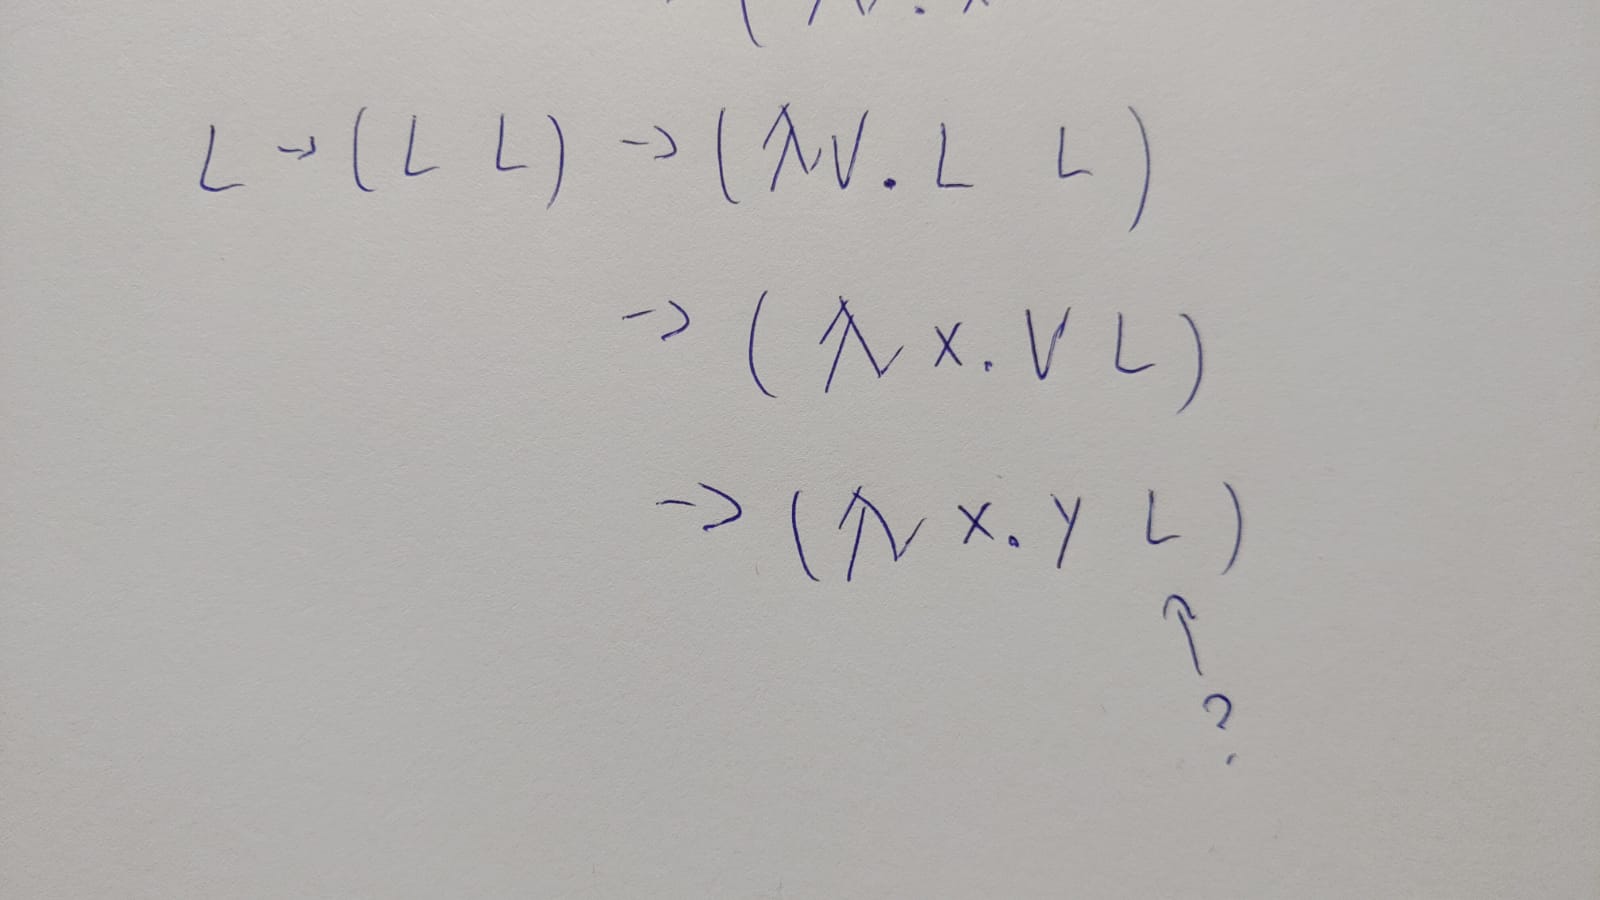 L → (L L) → (λV. L L)
→ (λ x. V L)
→ (λ x. y L)
↑
?